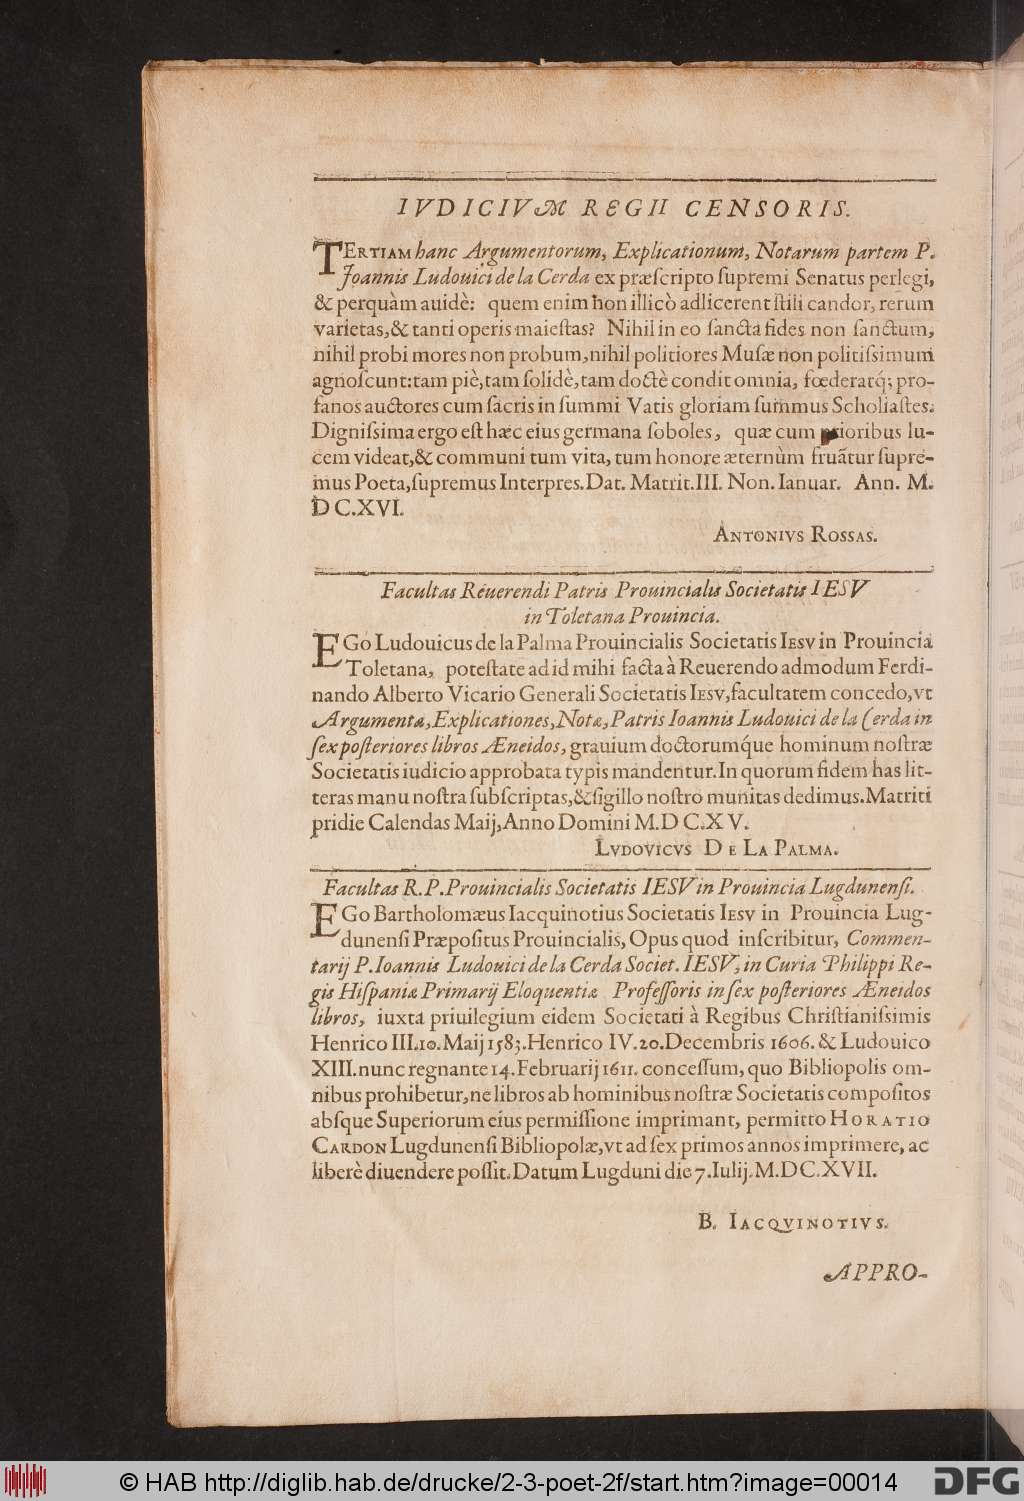 IVDICIVM REGII CENSORIS.
TERTIAM hanc Argumentorum, Explicationum, Notarum partem P.
Joannis Ludouici de la Cerda ex præſcripto ſupremi Senatus perlegi,
& perquàm auidè: quem enim non illicò adlicerent ſtili candor, rerum
varietas, & tanti operis maieſtas? Nihil in eo ſancta fides non ſanctum,
nihil probi mores non probum, nihil politiores Muſæ non politiſsimum
agnoſcunt: tam piè, tam ſolidè, tam doctè condit omnia, fœderatq́; pro-
fanos auctores cum ſacris in ſummi Vatis gloriam ſummus Scholiaſtes.
Digniſsima ergo eſt hæc eius germana ſoboles, quæ cum prioribus lu-
cem videat, & communi tum vita, tum honore æternùm fruãtur ſupre-
mus Poeta, ſupremus Interpres. Dat. Matrit. III. Non. Ianuar. Ann. M.
DC.XVI.
ANTONIVS ROSSAS.
Facultas Reuerendi Patris Prouincialis Societatis IESV
in Toletana Prouincia.
EGo Ludouicus de la Palma Prouincialis Societatis IESV in Prouincia
Toletana, poteſtate ad id mihi facta à Reuerendo admodum Ferdi-
nando Alberto Vicario Generali Societatis IESV, facultatem concedo, vt
Argumenta, Explicationes, Notæ, Patris Ioannis Ludouici de la Cerda in
ſex poſteriores libros Æneidos, grauium doctorumq́ue hominum noſtræ
Societatis iudicio approbata typis mandentur. In quorum fidem has lit-
teras manu noſtra ſubſcriptas, & ſigillo noſtro munitas dedimus. Matriti
pridie Calendas Maij, Anno Domini M.DC.XV.
LVDOVICVS DE LA PALMA.
Facultas R. P. Prouincialis Societatis IESV in Prouincia Lugdunenſi.
EGo Bartholomæus Iacquinotius Societatis IESV in Prouincia Lug-
dunenſi Præpoſitus Prouincialis, Opus quod inſcribitur, Commen-
tarij P. Ioannis Ludouici de la Cerda Societ. IESV, in Curia Philippi Re-
gis Hiſpaniæ Primarij Eloquentiæ Profeſſoris in ſex poſteriores Æneidos
libros, iuxta priuilegium eidem Societati à Regibus Chriſtianiſsimis
Henrico III. 10. Maij 1583. Henrico IV. 20. Decembris 1606. & Ludouico
XIII. nunc regnante 14. Februarij 1611. conceſſum, quo Bibliopolis om-
nibus prohibetur, ne libros ab hominibus noſtræ Societatis compoſitos
abſque Superiorum eius permiſſione imprimant, permitto HORATIO
CARDON Lugdunenſi Bibliopolæ, vt ad ſex primos annos imprimere, ac
liberè diuendere poſſit. Datum Lugduni die 7. Iulij. M.DC.XVII.
B. IACQVINOTIVS.
APPRO-
© HAB http://diglib.hab.de/drucke/2-3-poet-2f/start.htm?image=00014
DFG